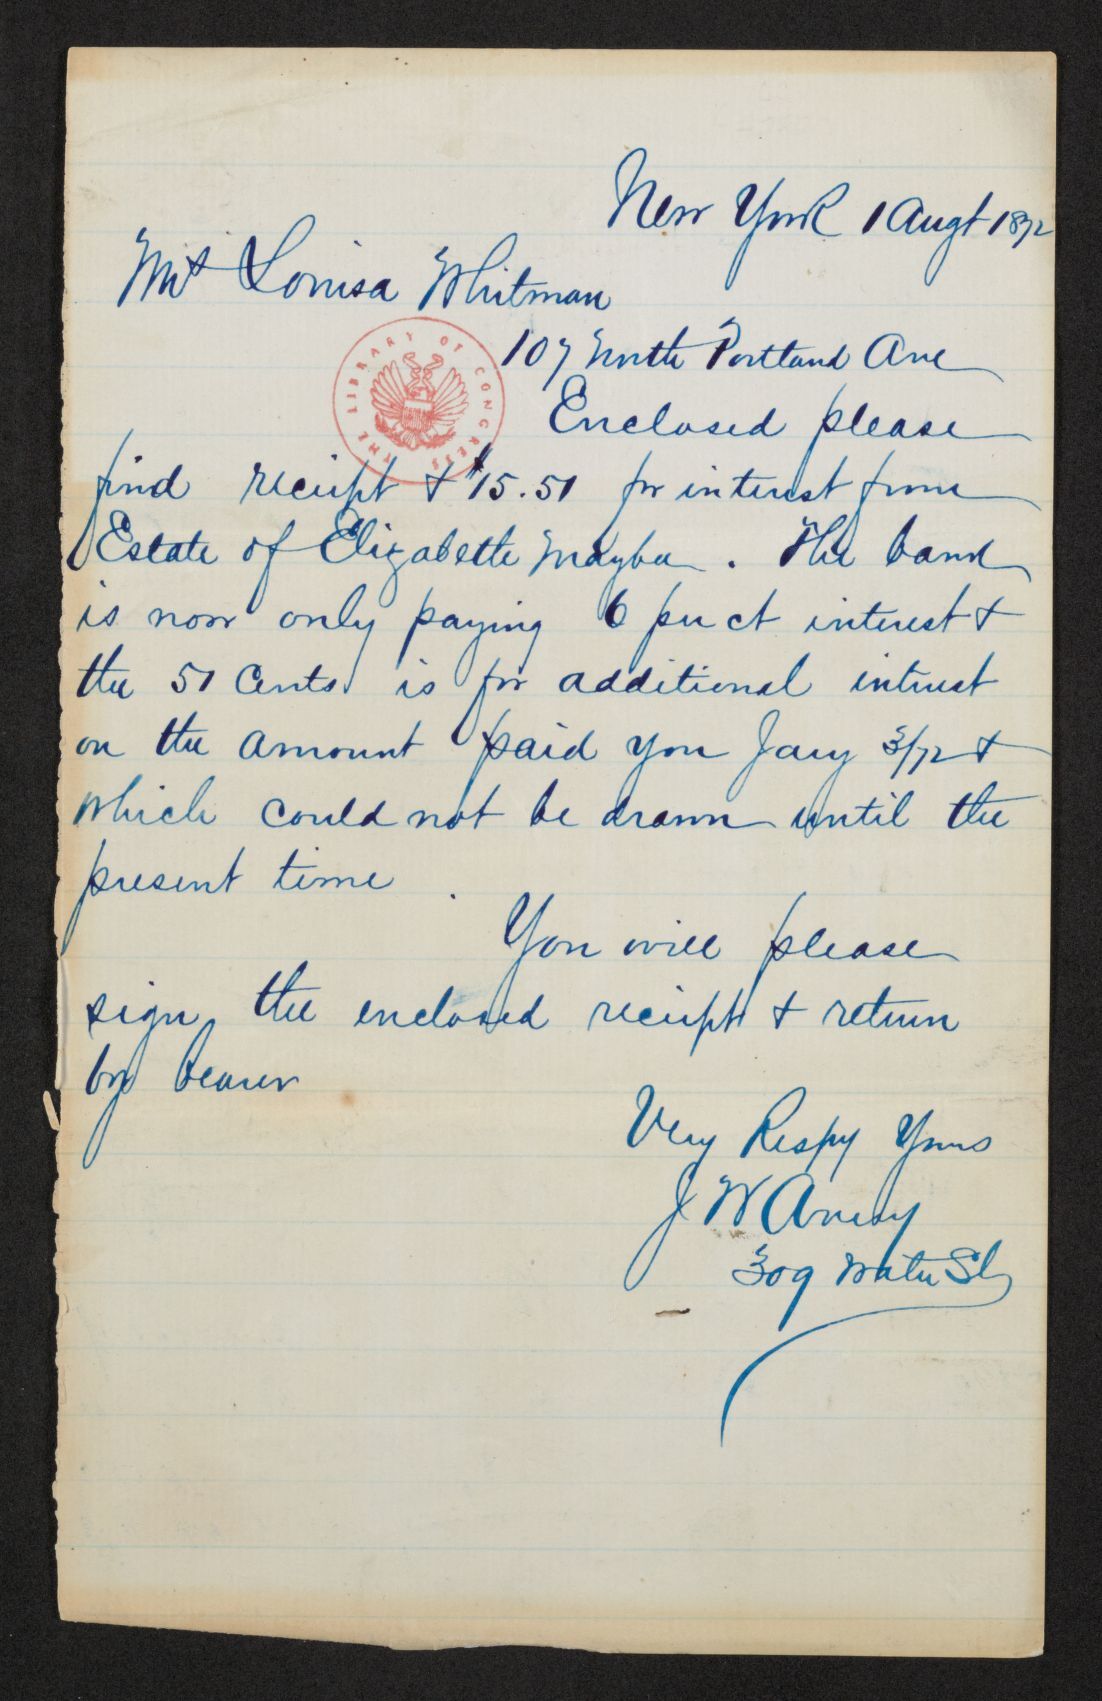 New York 1 Augt 1872
Mrs Louisa Whitman
107 North Portland Ave
THE LIBRARY OF CONGRESS
Enclosed please
find reciept & $15.51 for interest from
Estate of Elizabeth Maybee. The bank
is now only paying 6 per ct interest &
the 51 Cents is for additional interest
on the amount paid you Jany 3/72 &
which could not be drawn until the
present time.
You will please
sign the enclosed reciept & return
by bearer
Very Respy Yours
J W Avery
309 Water St